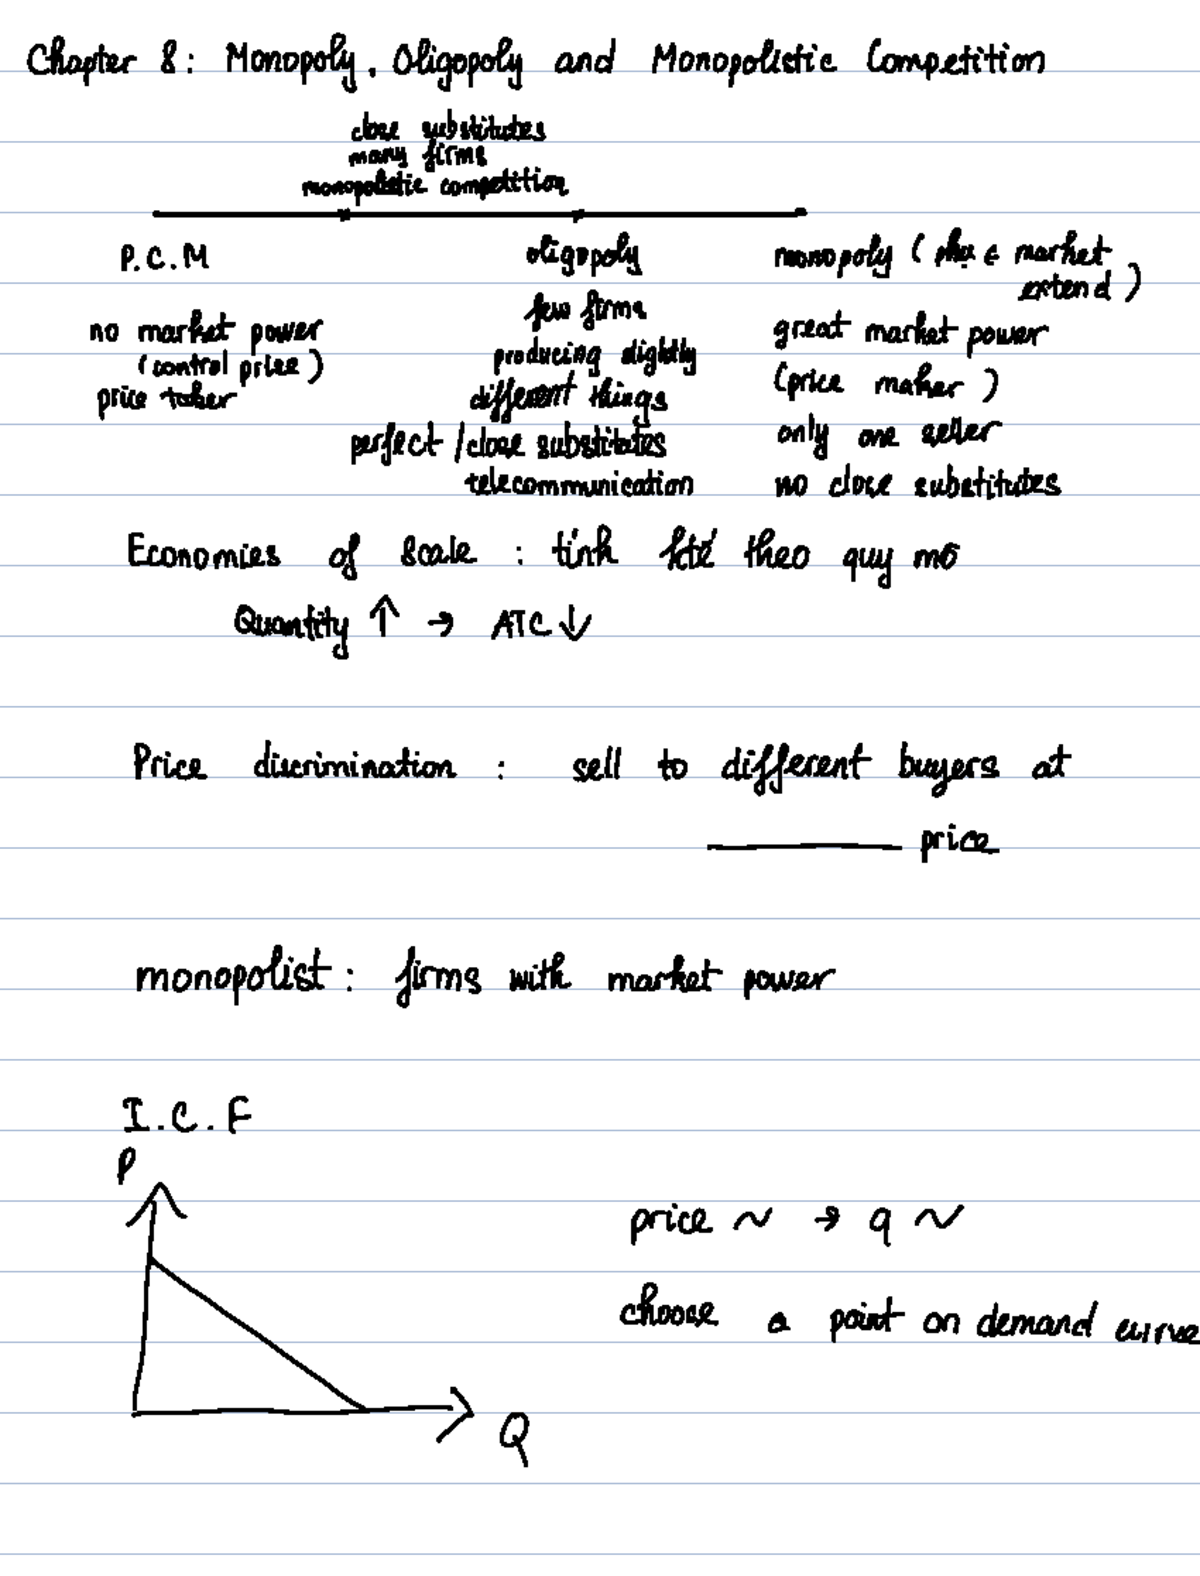 Chapter 8: Monopoly, Oligopoly and Monopolistic Competition
close substitutes
many firms
monopolistic competition
P.C.M
no market power
(control price)
price taker
oligopoly
few firms
producing slightly
different things
perfect / close substitutes
telecommunication
monopoly ( market
extend )
great market power
(price maker)
only one seller
no close substitutes
Economies of scale : tính ktế theo quy mô
Quantity ↑ → ATC ↓
Price discrimination : sell to different buyers at
______ price
monopolist: firms with market power
I.C.F
P
Q
price ~ → q ~
choose a point on demand curve